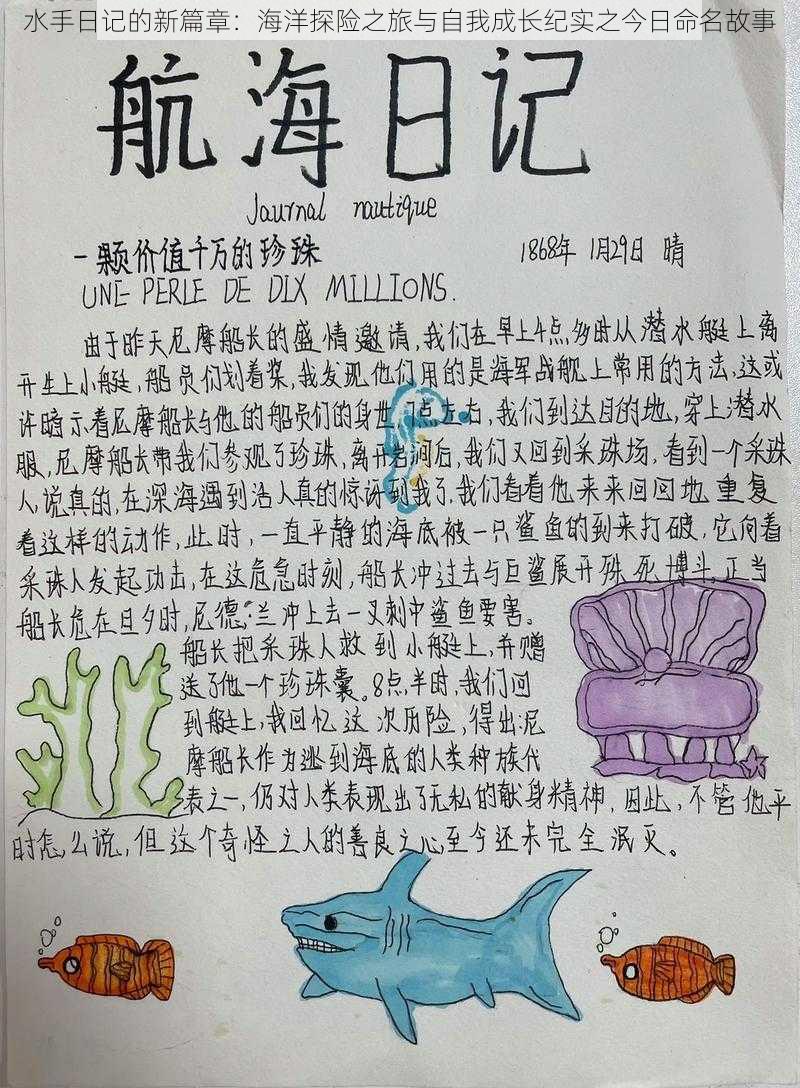 水手日记的新篇章：海洋探险之旅与自我成长纪实之今日命名故事
航海日记
Journal nautique
一颗价值千万的珍珠 1868年 1月29日 晴
UNE PERLE DE DIX MILLIONS.
由于昨天尼摩船长的盛情邀请，我们在早上4点多时从潜水艇上离
开坐上小艇，船员们划着桨，我发现他们用的是海军战舰上常用的方法，这或
许暗示着尼摩船长与他的船员们的身世 点左右，我们到达目的地，穿上潜水
服，尼摩船长带我们参观了珍珠，离开岩洞后，我们又回到采珠场，看到一个采珠
人，说真的，在深海遇到活人真的惊讶到我了，我们看着他来来回回地重复
着这样的动作，此时，一直平静的海底被一只鲨鱼的到来打破，它向着
采珠人发起功击，在这危急时刻，船长冲过去与巨鲨展开殊死博斗，正当
船长危在旦夕时，尼德·兰冲上去一叉刺中鲨鱼要害。
船长把采珠人救到小艇上，并赠
送了他一个珍珠囊。8点半时，我们回
到艇上，我回忆这次历险，得出：尼
摩船长作为逃到海底的人类种族代
表之一，仍对人类表现出了无私的献身精神，因此，不管他平
时怎么说，但这个奇怪之人的善良之心至今还未完全泯灭。